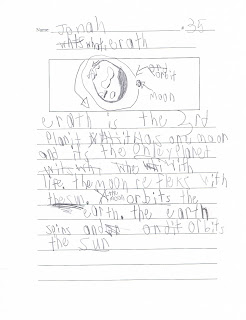 Name Jonah # 35
whats what erath
orbit
moon
erath is the 3rd
planit it has one moon
and it is the only planet
with
life. the moon reflexs with
the sun. the moon orbits the
earth. the earth
spins and and it orbits
the sun